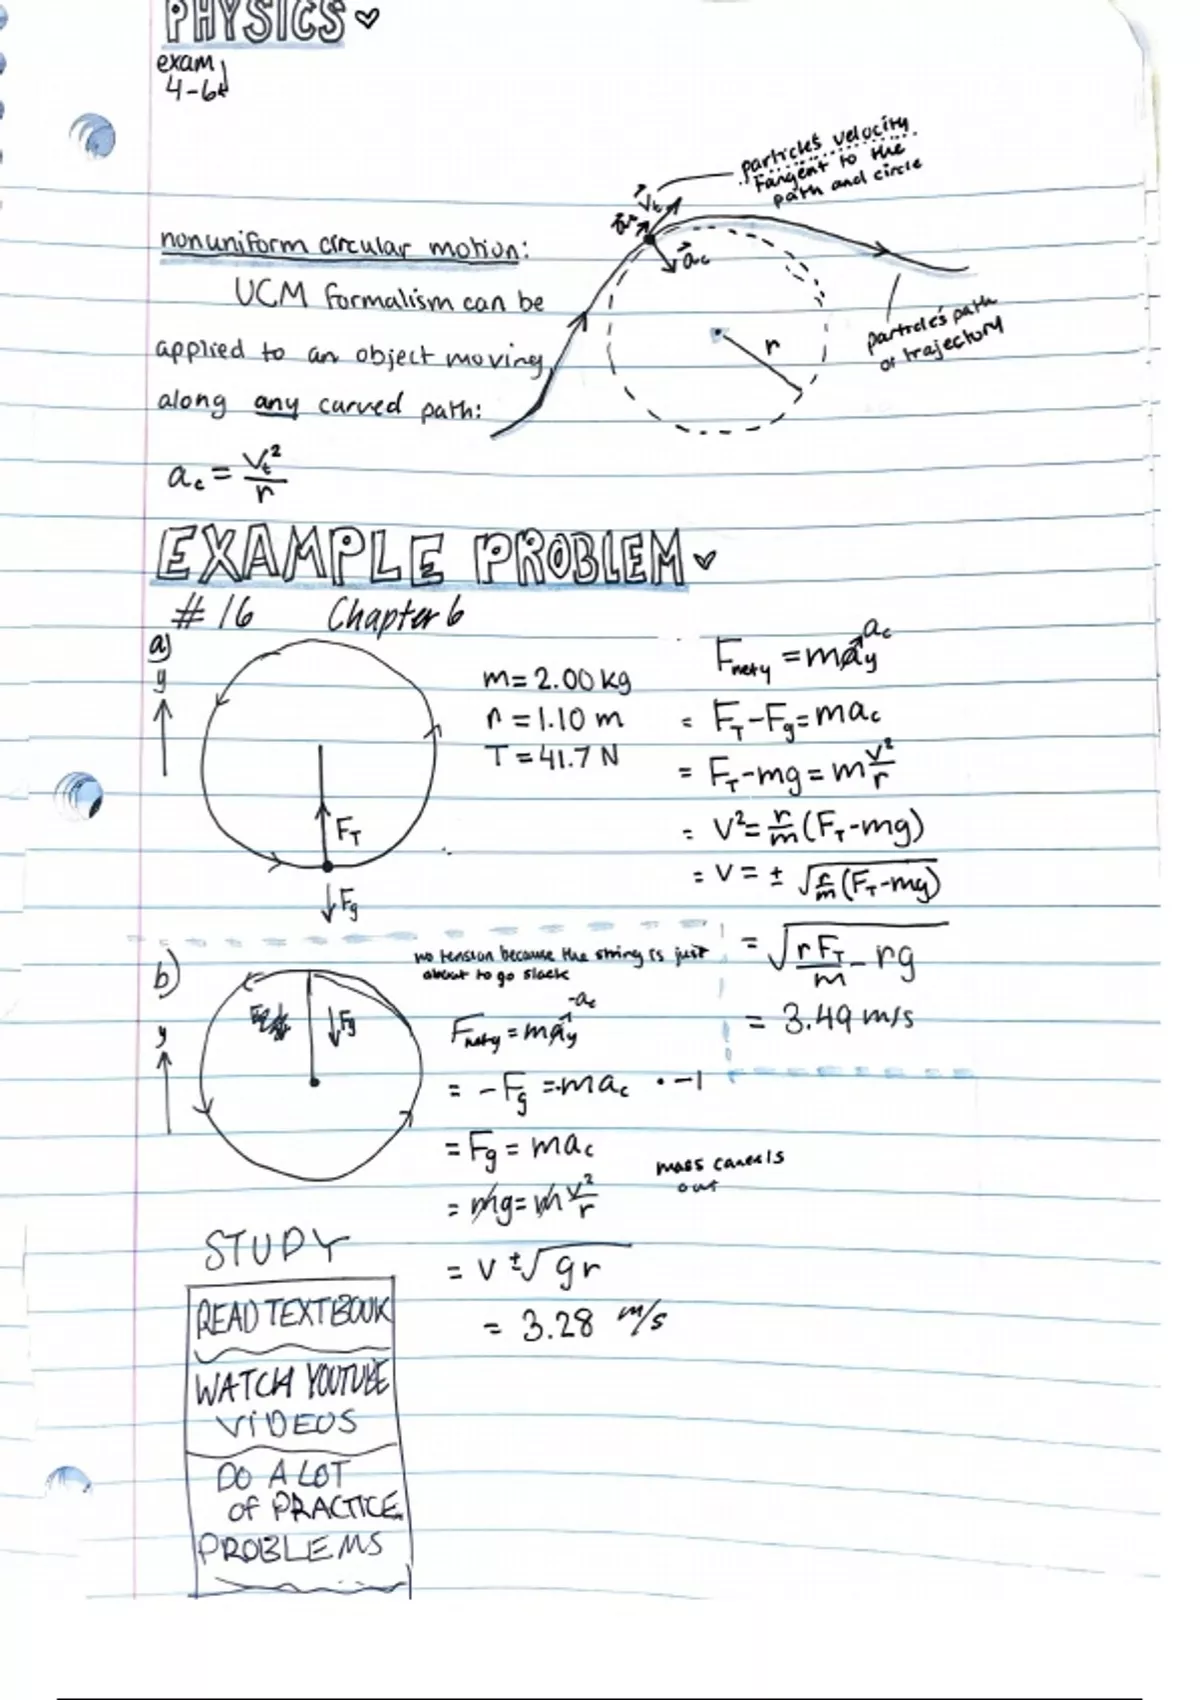 PHYSICS
exam
4-6
particle's velocity
tangent to the
path and circle
v_t
a_c
nonuniform circular motion:
UCM formalism can be
applied to an object moving
along any curved path:
r
particle's path
or trajectory
a_c = v_t²/r
EXAMPLE PROBLEM
#16 Chapter 6
a)
y
F_T
F_g
m = 2.00 kg
r = 1.10 m
T = 41.7 N
F_net y = ma_y a_c
= F_T - F_g = ma_c
= F_T - mg = m v²/r
= v² = r/m (F_T - mg)
= v = ± √(r/m (F_T - mg))
= √(r F_T/m - rg)
= 3.49 m/s
b)
y
F_g
no tension because the string is just
about to go slack
F_net y = ma_y -a_c
= -F_g = -ma_c · -1
= F_g = ma_c
= mg = m v²/r
mass cancels
out
= v ± √gr
= 3.28 m/s
STUDY
READ TEXTBOOK
WATCH YOUTUBE
VIDEOS
DO A LOT
OF PRACTICE
PROBLEMS